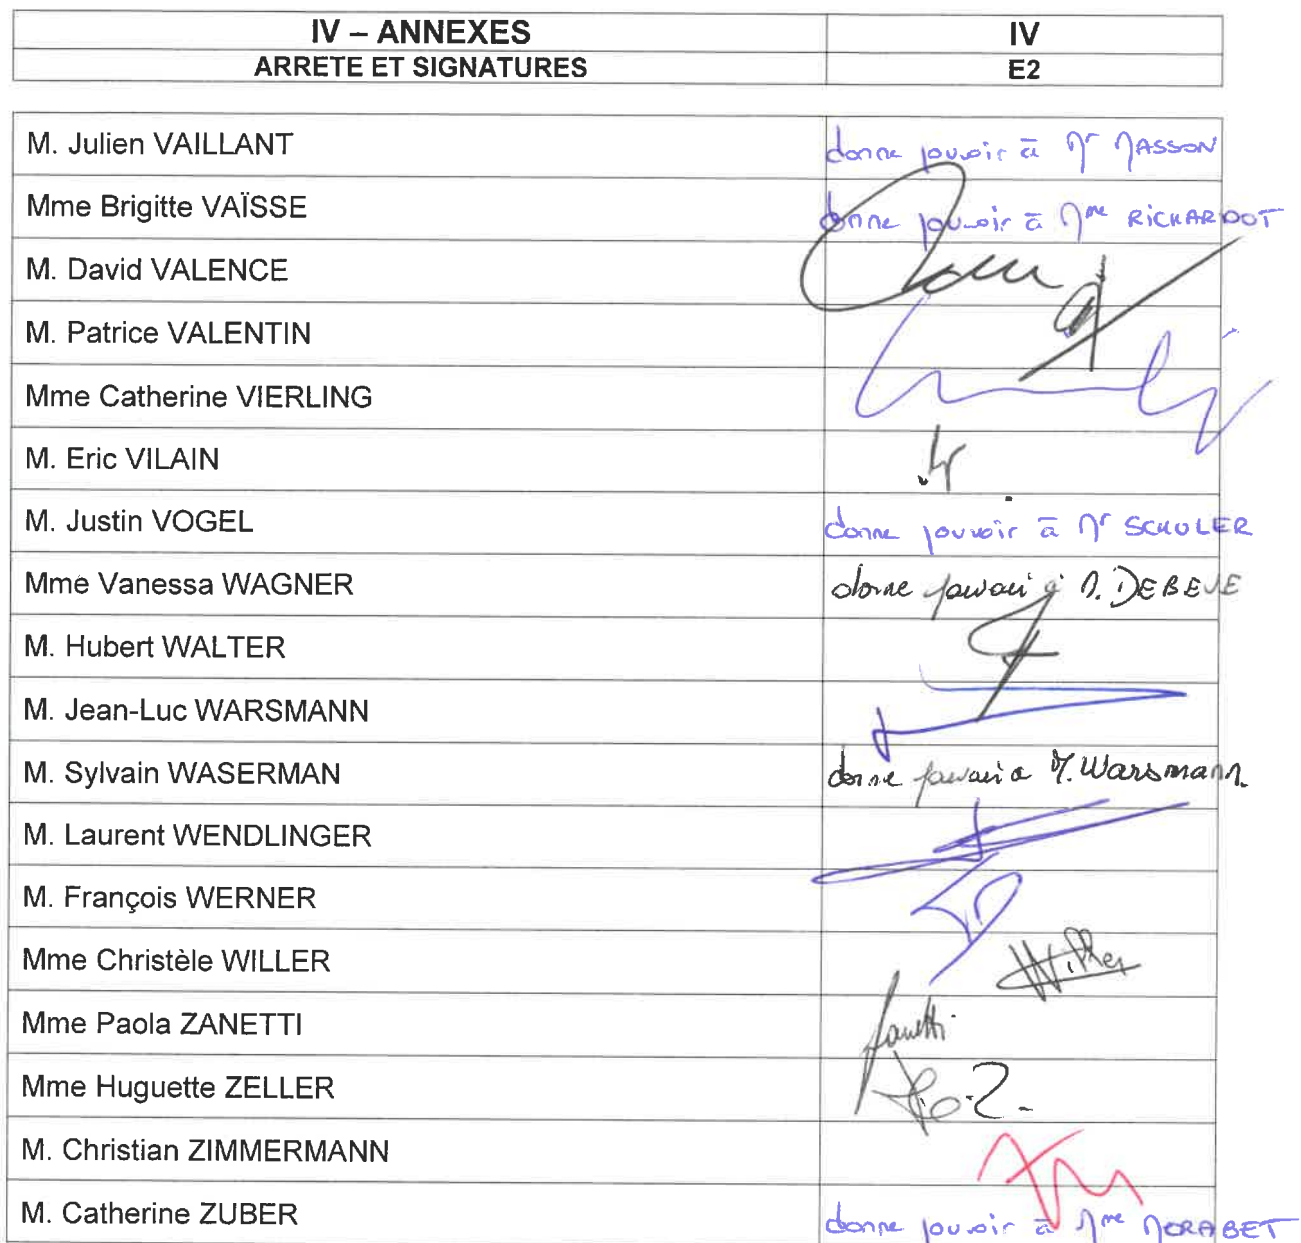 IV – ANNEXES IV
ARRETE ET SIGNATURES E2
M. Julien VAILLANT donne pouvoir à Mr MASSON
Mme Brigitte VAÏSSE donne pouvoir à Mme RICHARDOT
M. David VALENCE
M. Patrice VALENTIN
Mme Catherine VIERLING
M. Eric VILAIN
M. Justin VOGEL donne pouvoir à Mr SCHULER
Mme Vanessa WAGNER donne pouvoir à M. DEBEVE
M. Hubert WALTER
M. Jean-Luc WARSMANN
M. Sylvain WASERMAN donne pouvoir à M. Warsmann
M. Laurent WENDLINGER
M. François WERNER
Mme Christèle WILLER Willer
Mme Paola ZANETTI Zanetti
Mme Huguette ZELLER
M. Christian ZIMMERMANN
M. Catherine ZUBER donne pouvoir à Mme MORABET